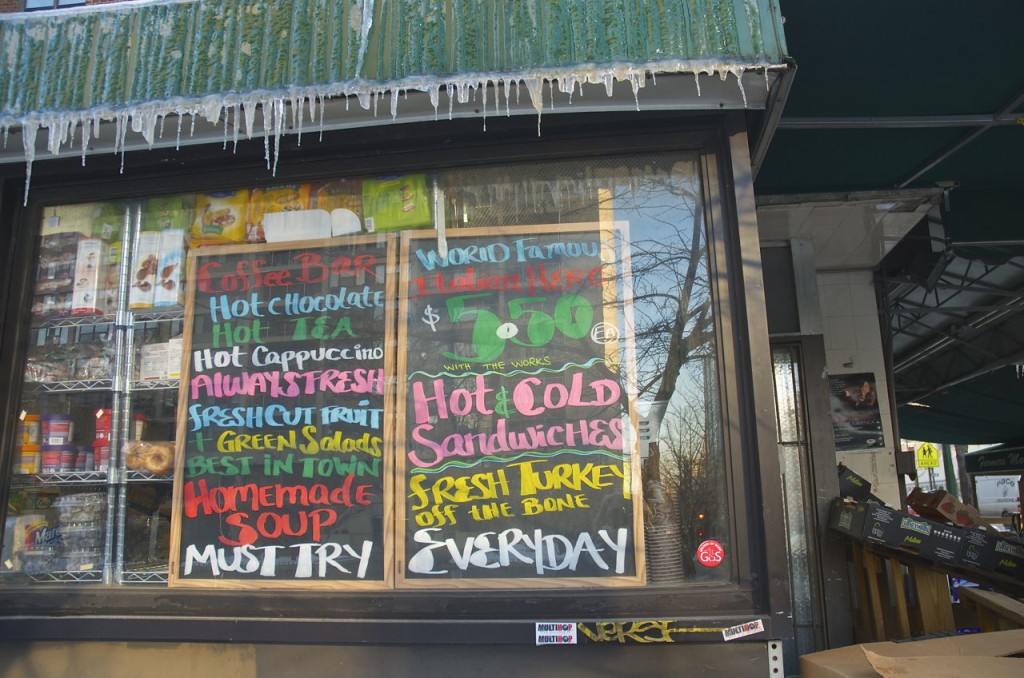 Coffee Bar
Hot Chocolate
Hot TEA
Hot Cappuccino
ALWAYS FRESH
FRESH CUT FRUIT
+ GREEN Salads
BEST IN TOWN
Homemade
SOUP
MUST TRY
WORLD FAMOUS
Italian Hero
$ 5.50 EA
WITH THE WORKS
Hot & COLD
SandwicHES
FRESH TURKEY
OFF THE BONE
EVERYDAY
GS
MULTIHOP
MULTIHOP
MULTIHOP